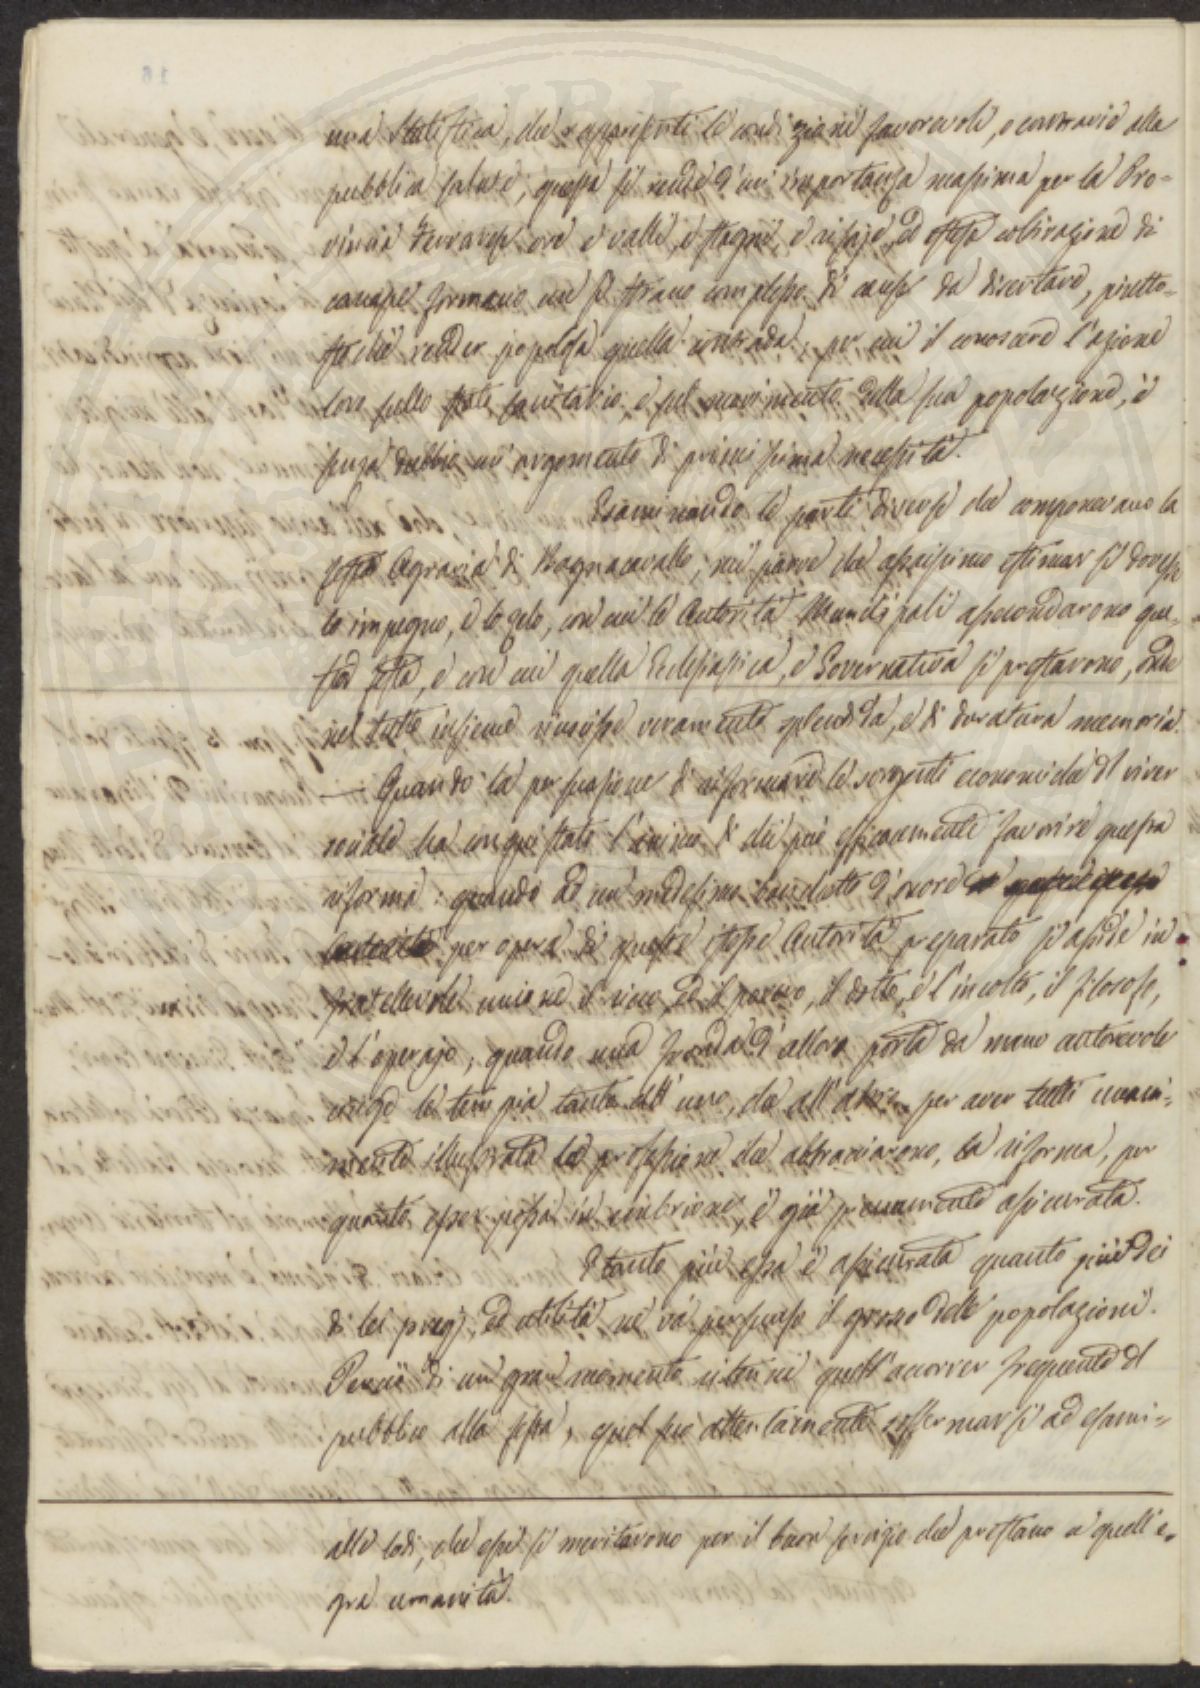 una statistica, che rappresenti le condizioni favorevoli, o contrarie alla
pubblica salute; questa si rende d'un' importanza massima per la Pro-
vincia Ferrarese ove e valli, e stagni, e risaje, ed estesa coltivazione di
canape formano un sì strano complesso di cause da disertare, piutto-
stochè render popolosa quella contrada; per cui il conoscere l'azione
loro sullo stato sanitario, e sul movimento della sua popolazione, è
senza dubbio un' argomento di primissima necessità.
Esaminando le parti diverse che componevano la
festa Agraria di Bagnacavallo, mi parve che assaissimo estimar si dovesse
lo impegno, e lo zelo, con cui le Autorità Municipali assecondarono que-
sta festa, e con cui quella Ecclesiastica, e Governativa si prestarono, onde
nel tutto insieme riuscisse veramente splendida, e di duratura memoria.
— Quando la persuasione di riformare le sorgenti economiche del viver
sociale ha conquistato l'animo di chi può efficacemente favorire questa
riforma: quando ad un medesimo banchetto d'onore
per opera di queste istesse Autorità preparato si asside in
fratellevole unione il ricco, ed il povero, il dotto, e l'incolto, il filosofo,
e l'operajo; quando una fronda d'alloro porta da mano autorevole
cinge le tempia tanto all'uno, che all'altro per aver tutti unani-
mente illustrata la professione che abbracciarono, la riforma, per
quanto esser possa in embrione, è già pienamente assicurata.
E tanto più essa è assicurata quanto più dei
di lei pregj, ed utilità ne va persuaso il grosso delle popolazioni.
Perciò di un gran momento ritenni quell'accorrer frequente del
pubblico alla festa, quel suo attentamente soffermarsi ad esami-
alle lodi, che essi si meritarono per il buon servizio che prestano a quell'e-
gra umanità.